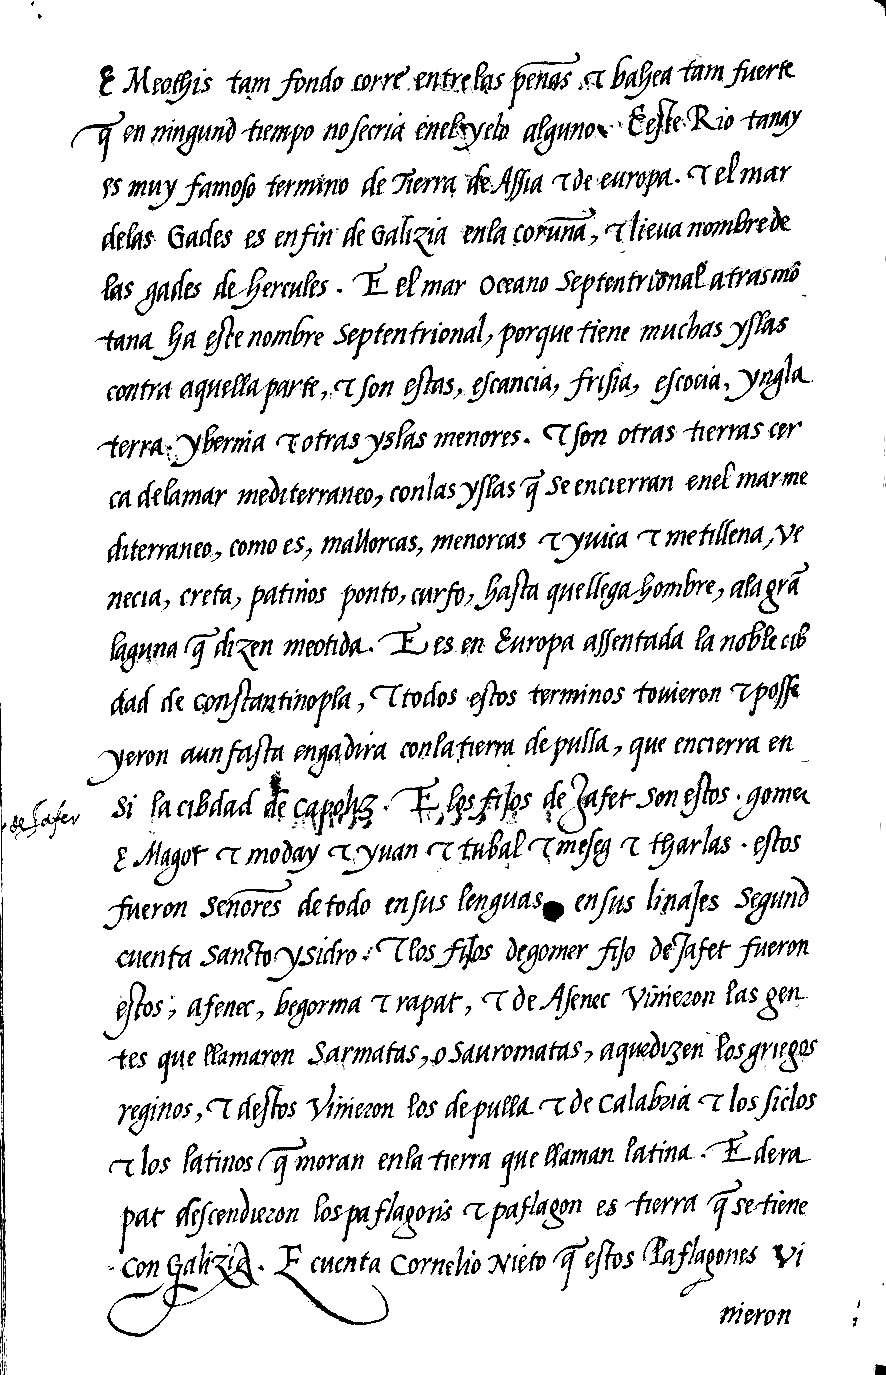 E Meothis tam fondo corre entre las peñas & bahea tam fuerte
q̃ en ningund tiempo no se cria en el yelo alguno. E este Rio tanay
es muy famoso termino de Tierra de Assia & de europa. & el mar
delas Gades es en fin de Galizia en la coruña, & lieua nombre de
las gades de hercules. E el mar oceano septentrional atras mõ
tana ha este nombre septentrional, porque tiene muchas yslas
contra aquella parte, & son estas, escancia, frisia, escocia, yngla
terra. ybernia & otras yslas menores. & son otras tierras cer
ca de la mar mediterraneo, con las yslas q̃ se encierran en el mar me
diterraneo, como es, mallorcas, menorcas & yuica & metillena, ve
necia, creta, patinos ponto, curfo, hasta que llega hombre, ala grã
laguna q̃ dizen meotida. E es en Europa assentada la noble cib
dad de constantinopla, & todos estos terminos touieron & posse
yeron aun fasta engadira con la tierra de pulla, que encierra en
si la cibdad de capoliz. E los fijos de Jafet son estos. gomer
de Jafet
E Magot & moday & yuan & tubal & meseg & tharlas. estos
fueron señores de todo en sus lenguas en sus linajes segund
cuenta sancto ysidro. & los fijos de gomer fijo de Jafet fueron
estos; asenec, begorma & rapat, & de Asenec viñieron las gen
tes que llamaron Sarmatas, o sauromatas, aque dizen los griegos
reginos, & destos viñieron los de pulla & de Calabria & los siclos
& los latinos q̃ moran en la tierra que llaman latina. E de ra
pat descendieron los paflagoñs & paflagon es tierra q̃ se tiene
con Galizia. E cuenta Cornelio Nieto q̃ estos Paflagones vi
nieron